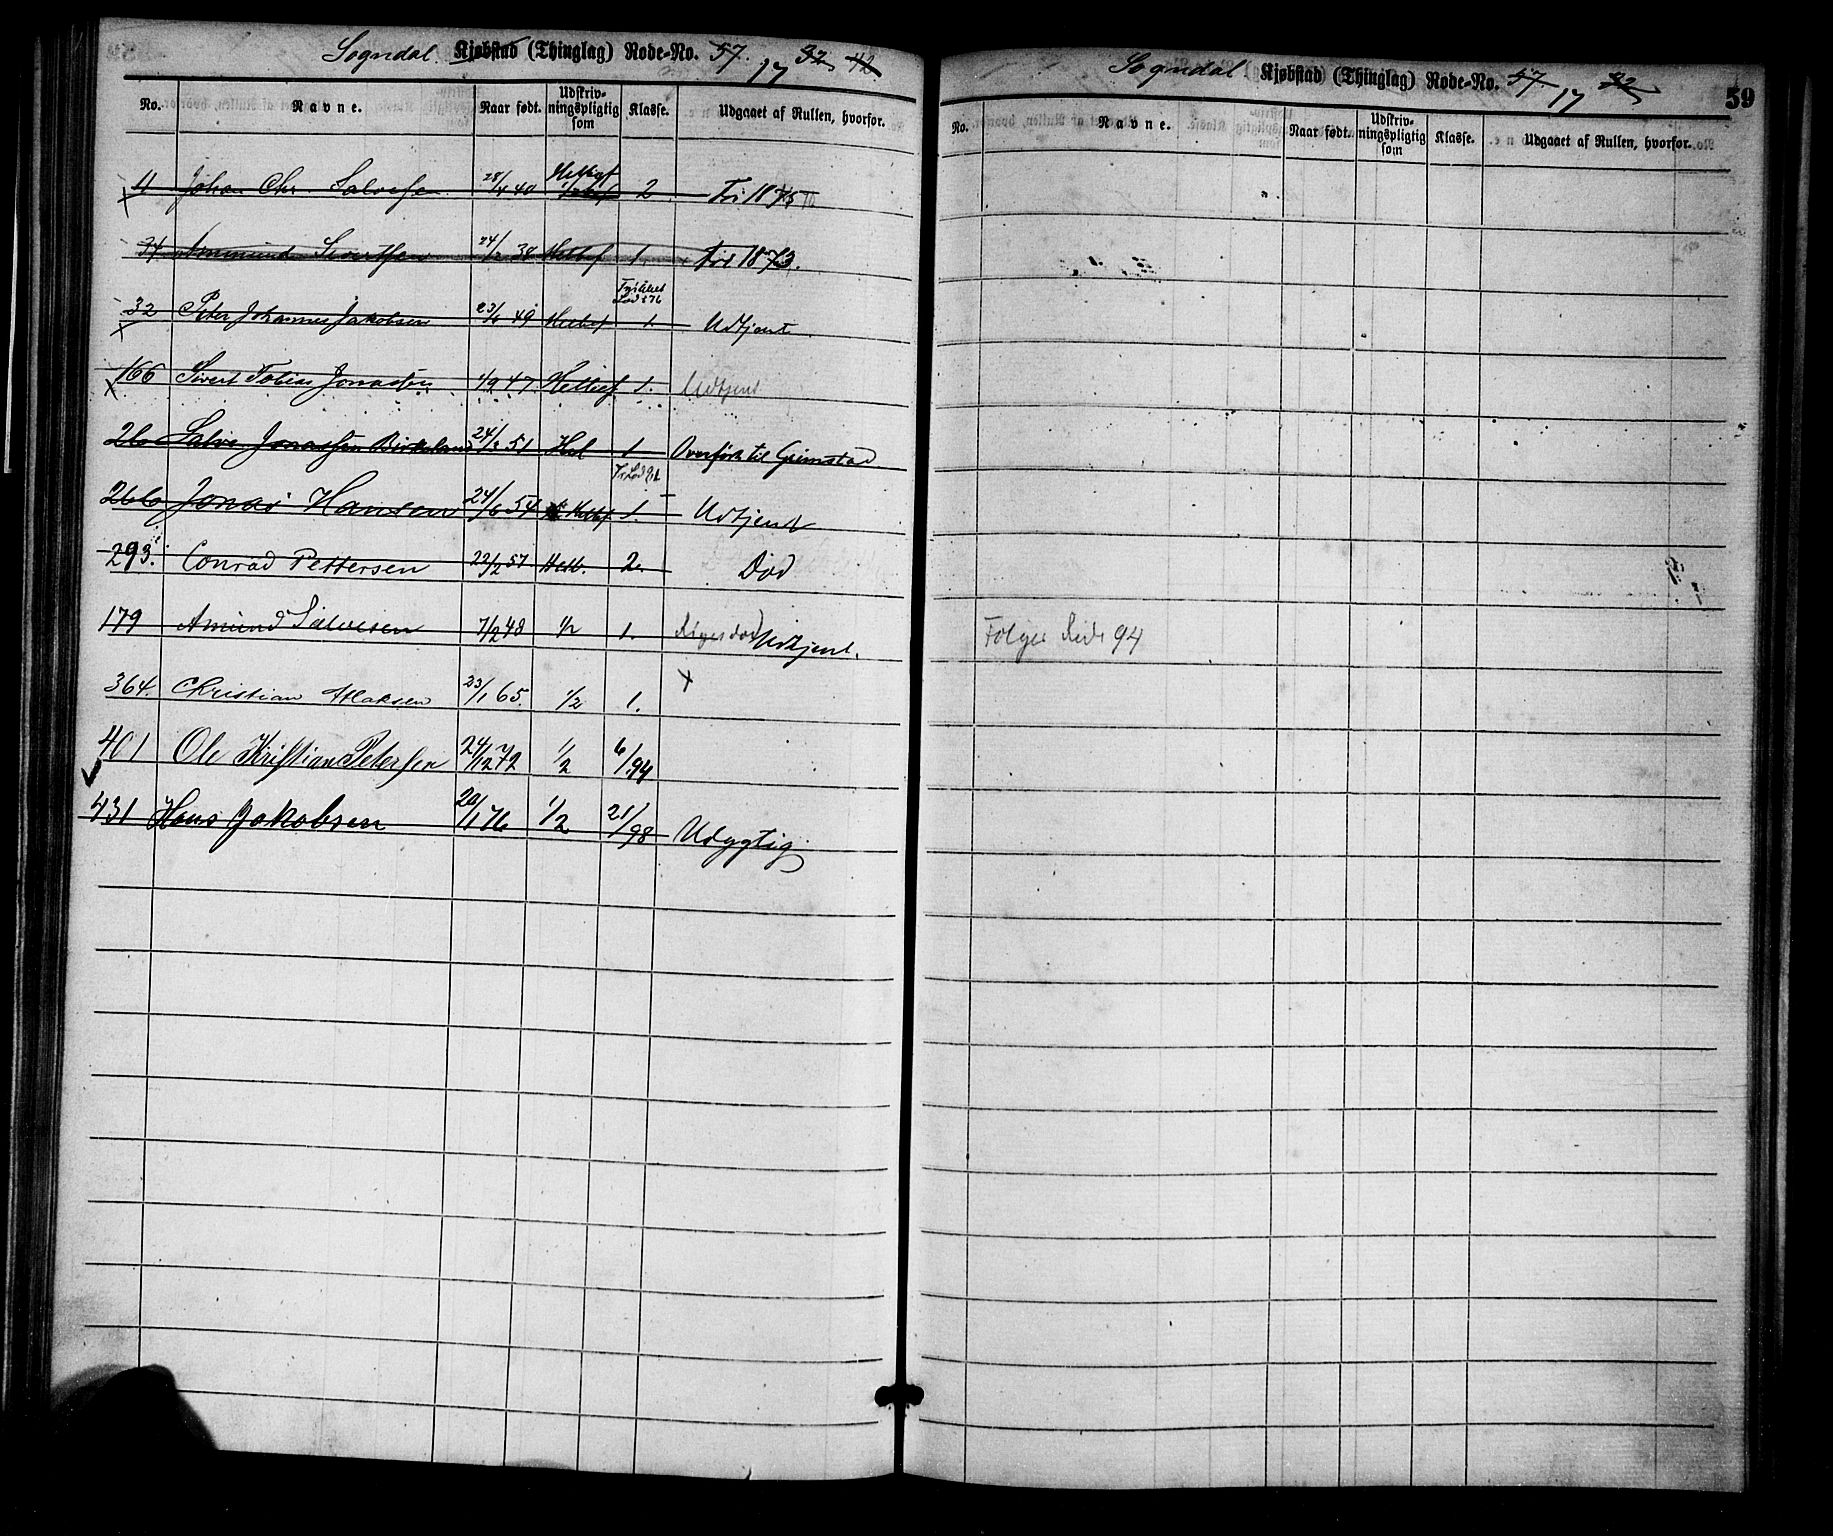 Sogndal. Kjøbstad (Thinglag) Rode-No. 57. 17 32 42
No. Navne. Naar født. Udskriv-ningspligtig som Klasse. Udgaaet af Rullen, hvorfor.
4 Johan Chr. Salvesen 28/4 40 1/2 2 Fri 1875
34 Ammund Sivertsen 24/2 38 Helbef 1. Frie 1873.
32 Peter Johannes Jakobsen 23/6 49 Helbef 1. Udtjent
166 Sivert Tobias Jonassen 1/9 47 Helbef 1. Udtjent
26 Salve Jonassen Birkeland 24/3 51 Hel 1 Overført til Grimstad
266 Jonas Hansen 24/6 54 Helbef. 1. Udtjent
293. Conrad Pettersen 22/2 57 Helb. 2. Død
179 Amund Salvesen 7/2 48 1/2 1. Udtjent.
364. Christian Aslaksen 23/1 65. 1/2 1. x
401 Ole Kristian Petersen 24/12 72 1/2 6/94
431 Hans Jakobsen 20/1 76 1/2 21/98 Udygtig
Sogndal Kjøbstad (Thinglag) Rode-No. 57. 17 32
59
No. Navne. Naar født. Udskriv-ningspligtig som Klasse. Udgaaet af Rullen, hvorfor.
Følger Side 94